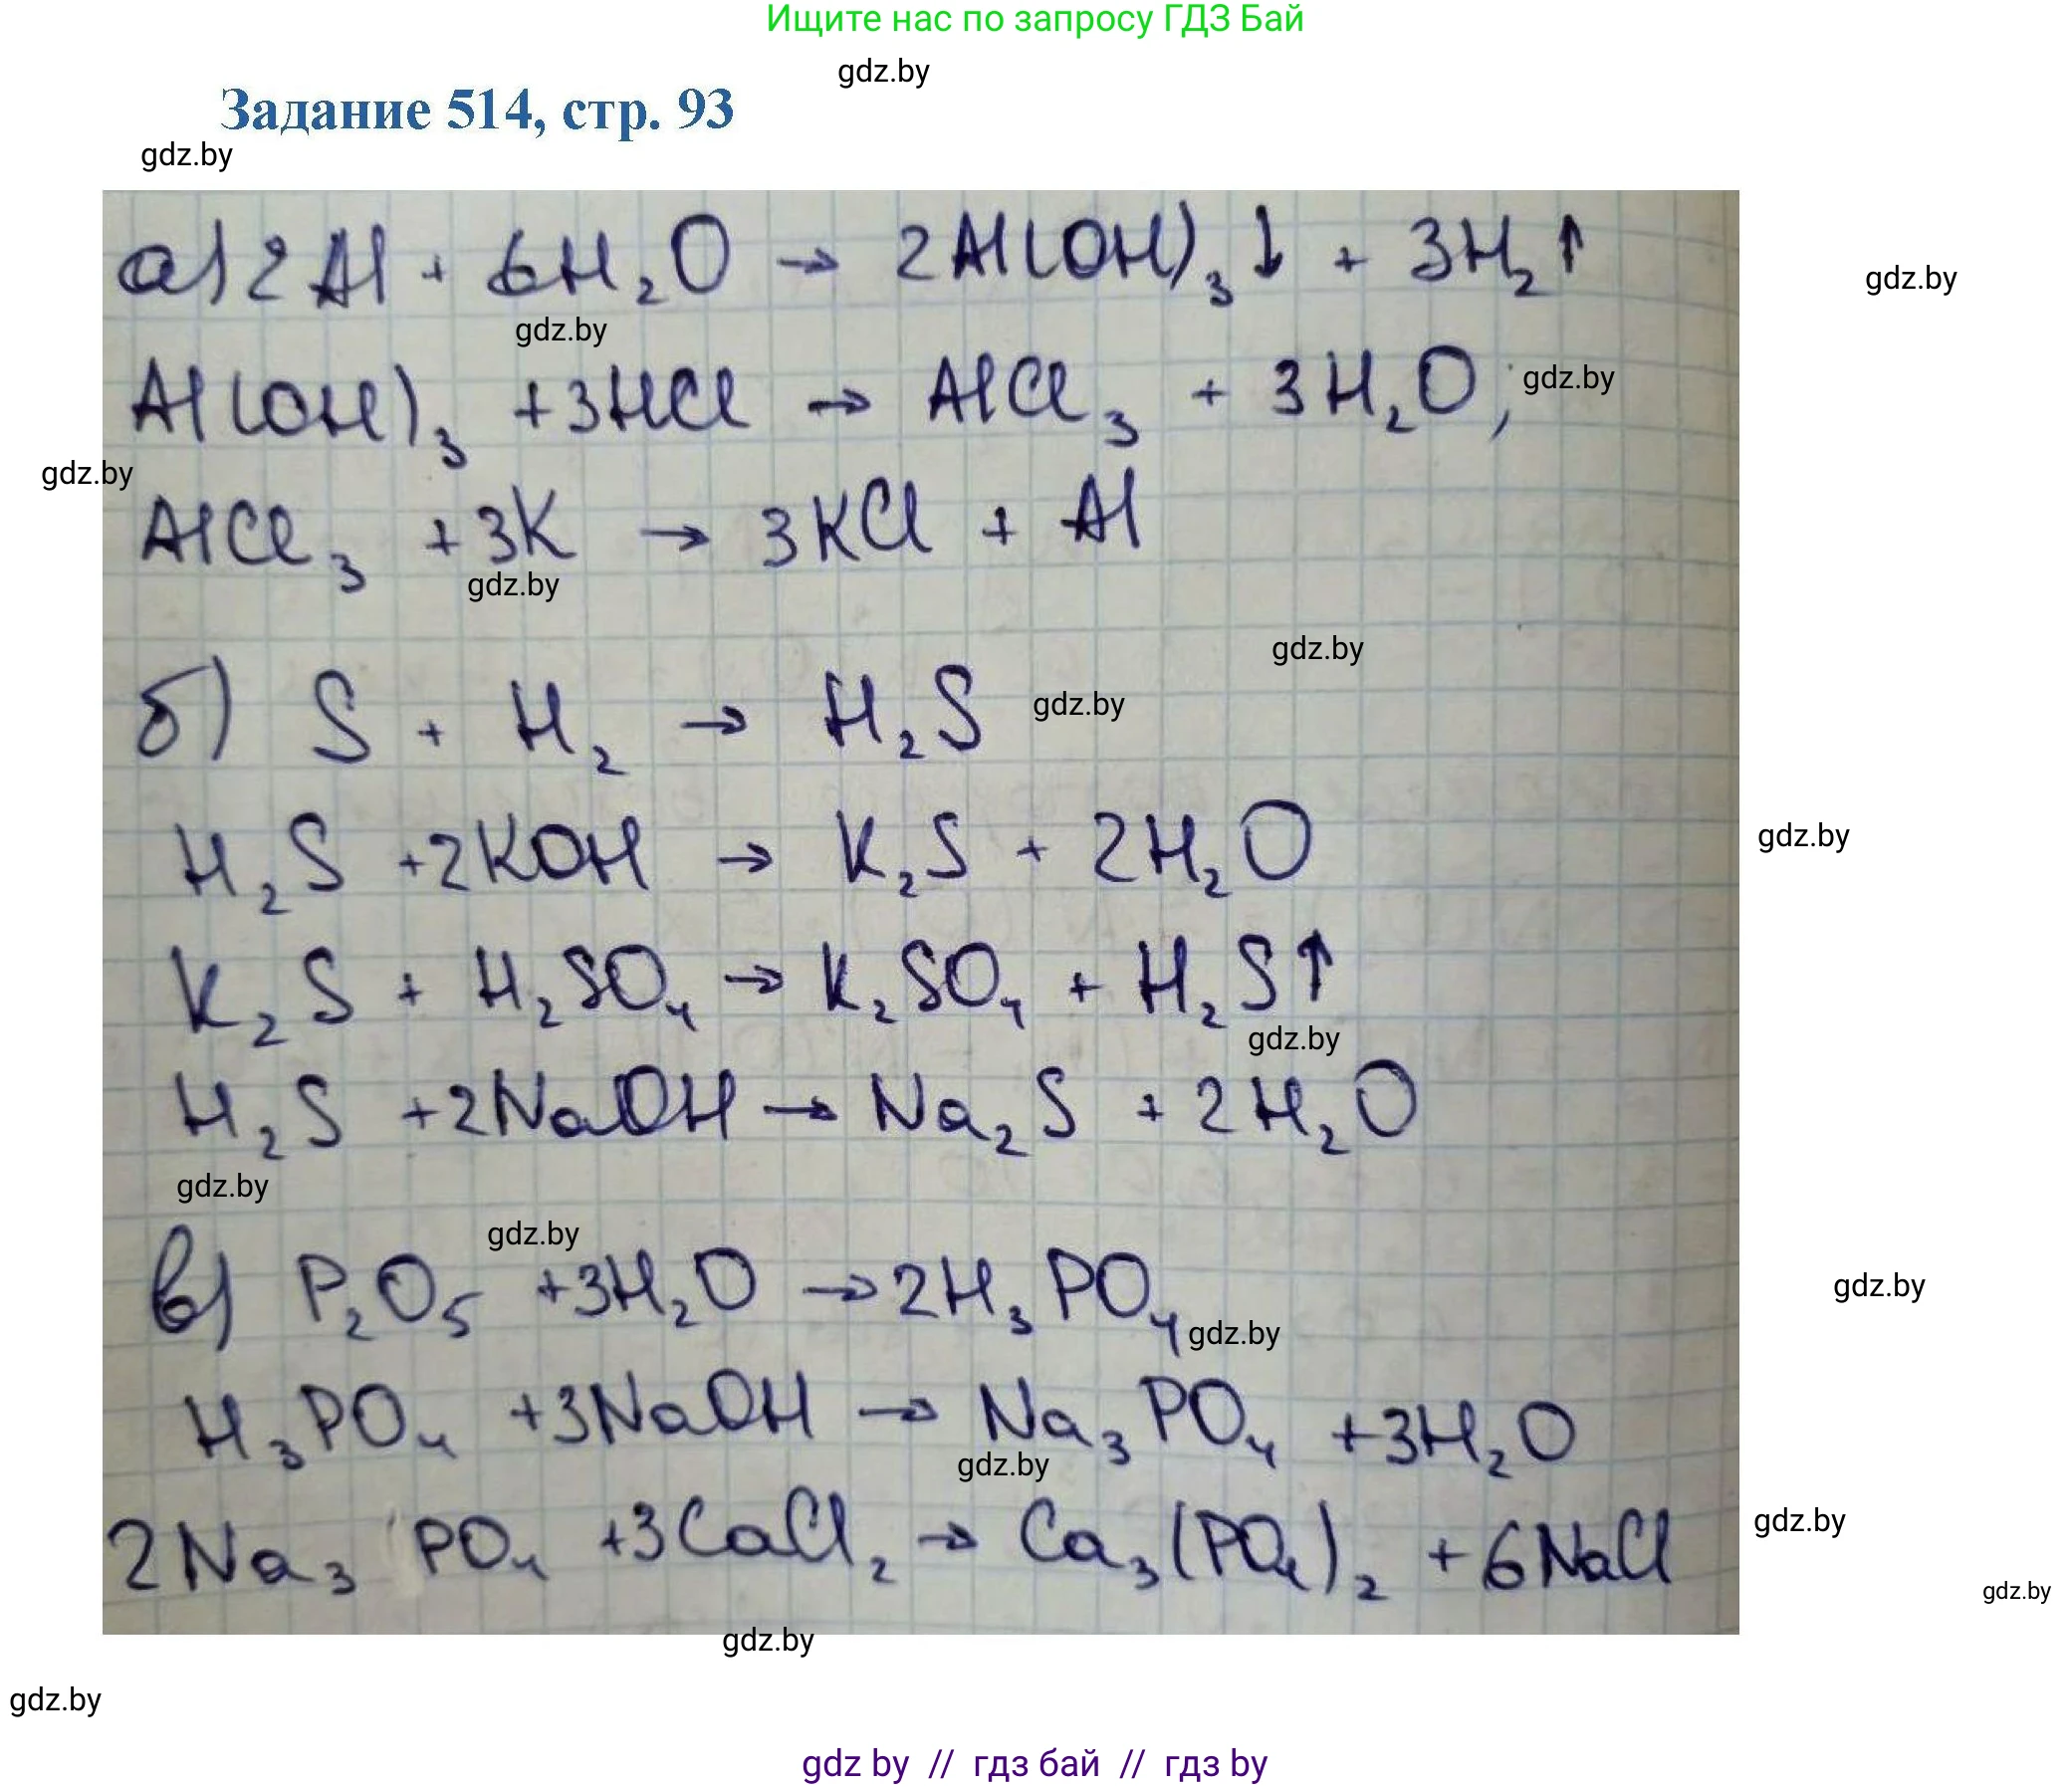 Ищите нас по запросу ГДЗ Бай
gdz.by
Задание 514, стр. 93
gdz.by
а) 2Al + 6H₂O → 2Al(OH)₃↓ + 3H₂↑
gdz.by
gdz.by
Al(OH)₃ +3HCl → AlCl₃ + 3H₂O;
gdz.by
gdz.by
AlCl₃ +3K → 3KCl + Al
gdz.by
gdz.by
б) S + H₂ → H₂S
gdz.by
H₂S +2KOH → K₂S + 2H₂O
gdz.by
K₂S + H₂SO₄ → K₂SO₄ + H₂S↑
gdz.by
H₂S +2NaOH → Na₂S + 2H₂O
gdz.by
gdz.by
в) P₂O₅ +3H₂O → 2H₃PO₄
gdz.by
gdz.by
H₃PO₄ +3NaOH → Na₃PO₄ +3H₂O
gdz.by
2Na₃PO₄ +3CaCl₂ → Ca₃(PO₄)₂ + 6NaCl
gdz.by
gdz.by
gdz.by
gdz.by
gdz by // гдз бай // гдз by